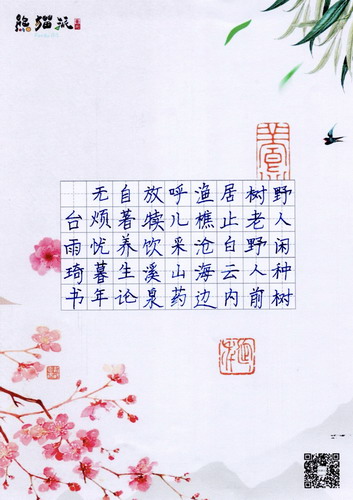 熊猫派
野人闲种树
树老野人前
居止白云内
渔樵沧海边
呼儿采山药
放犊饮溪泉
自著养生论
无烦忧暮年
台雨琦书